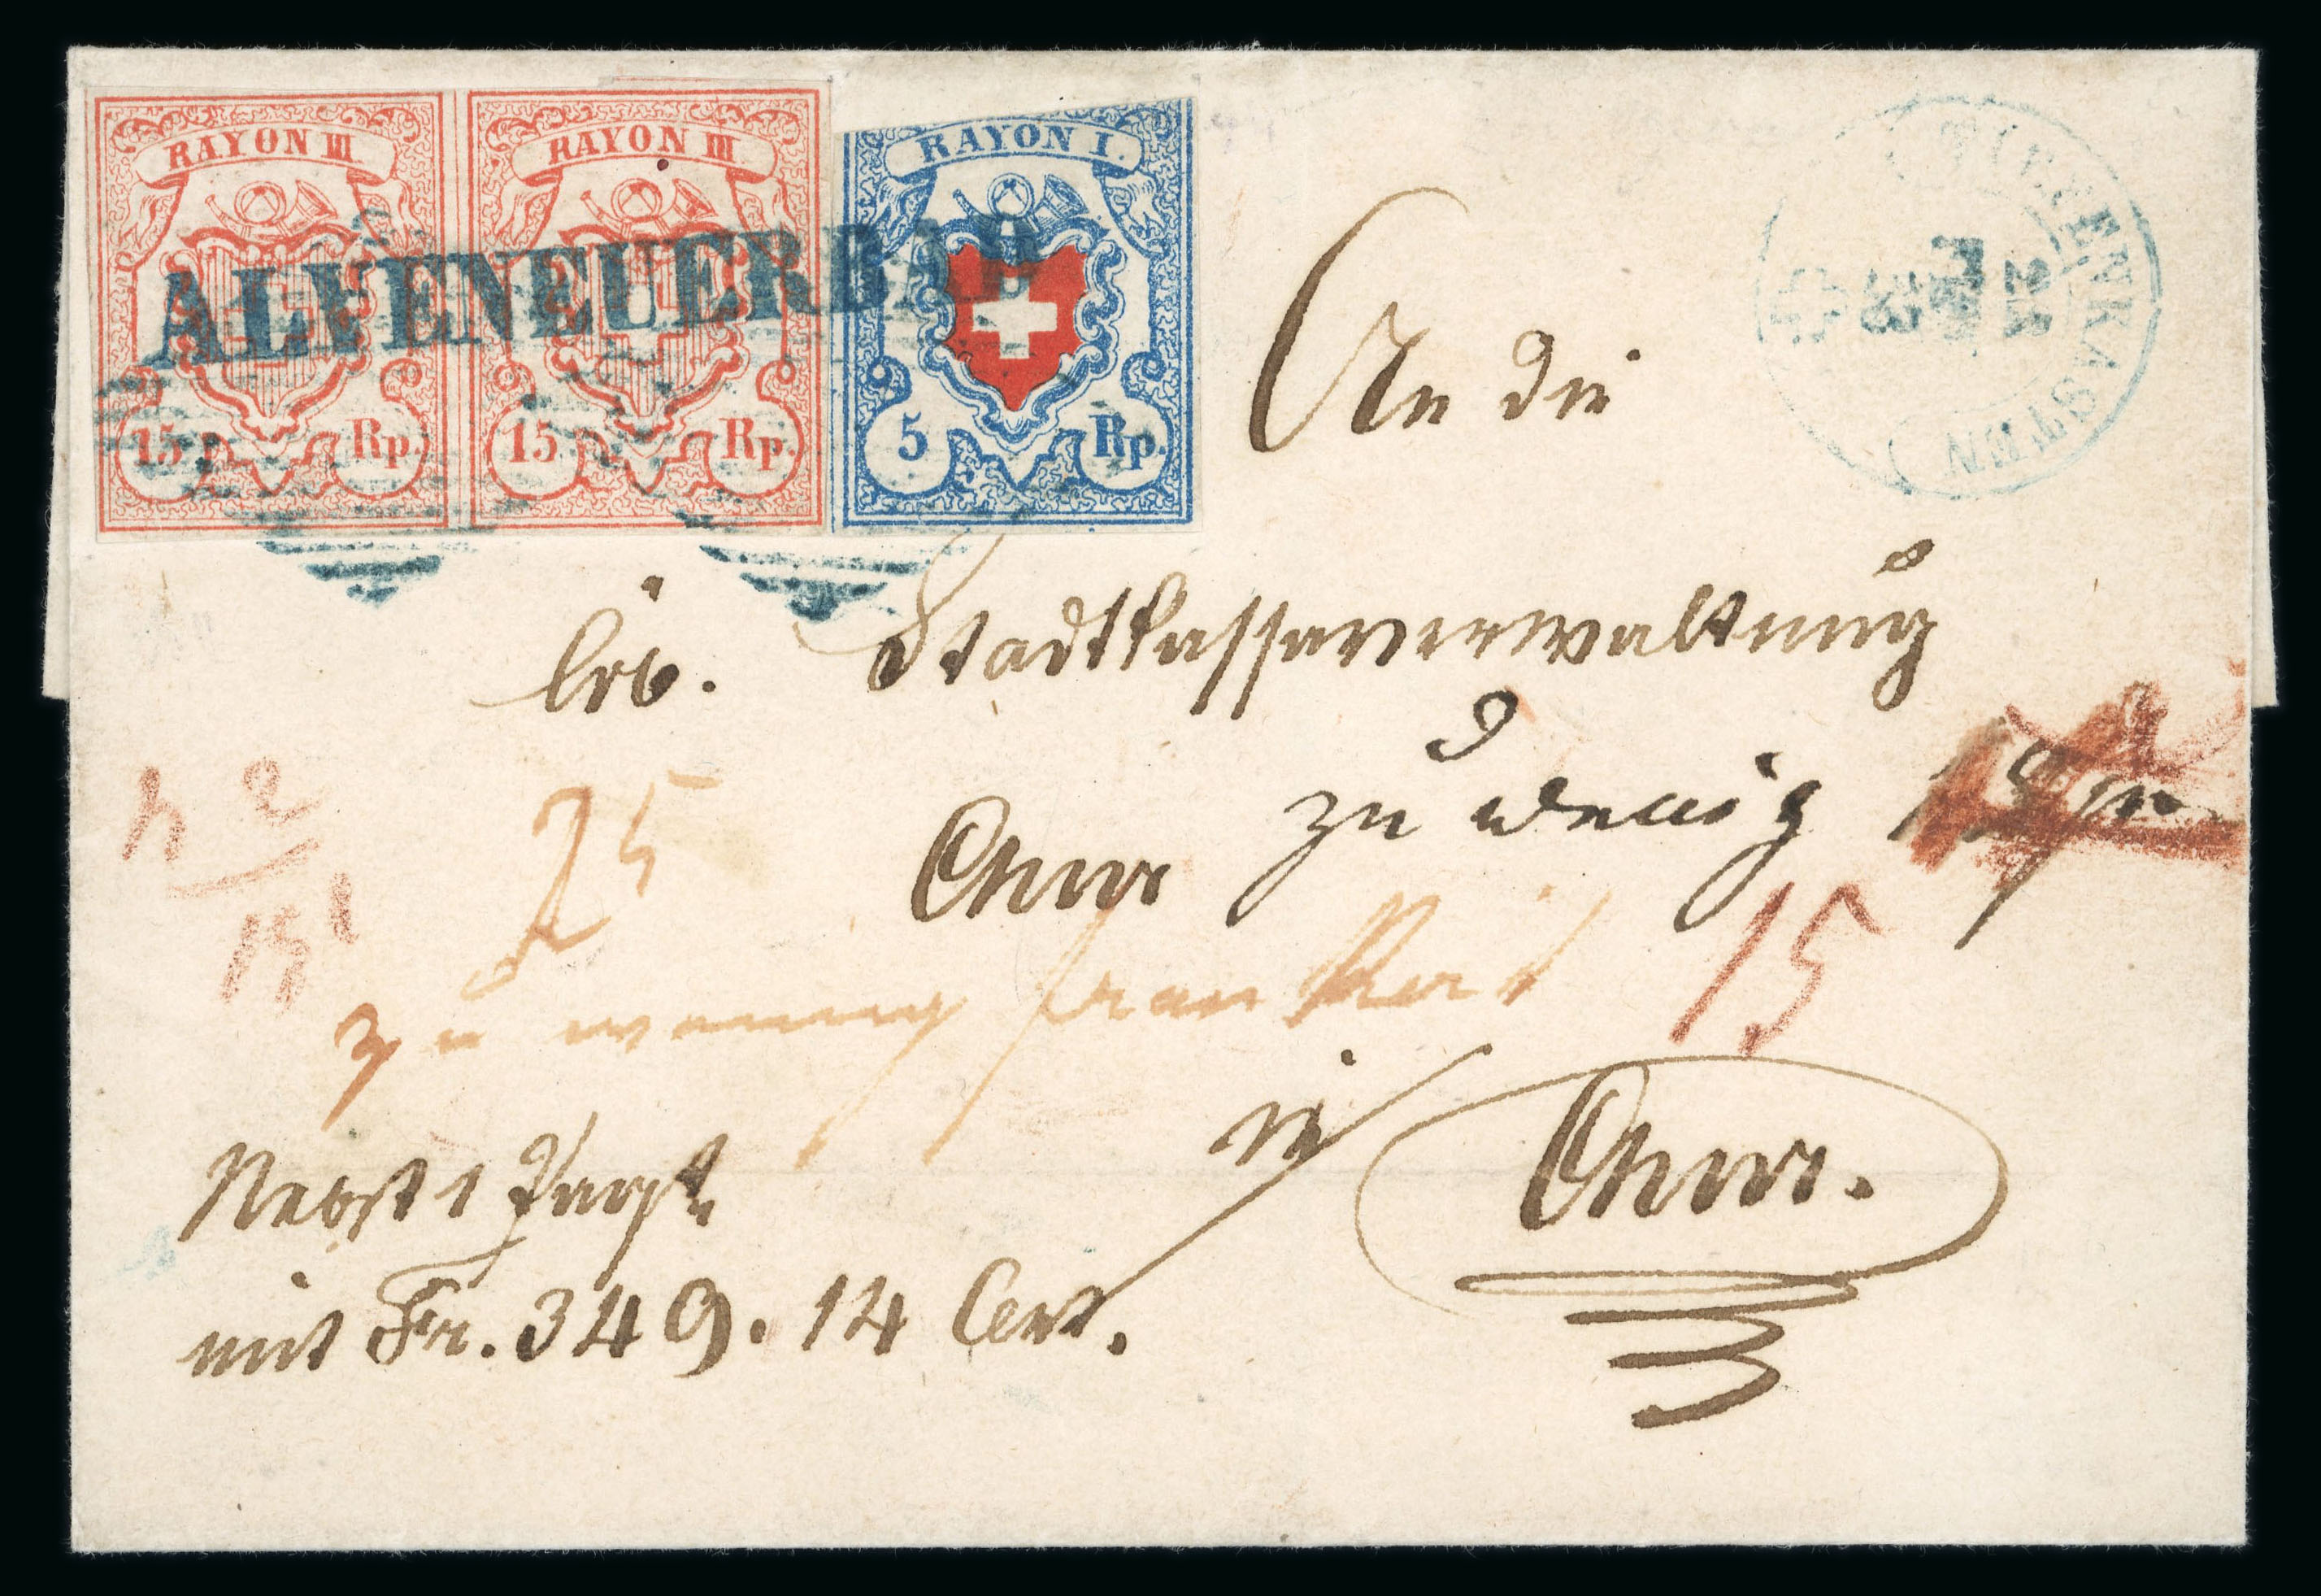 RAYON III
RAYON III
RAYON I.
ALVENEUERBAD
15 Rp.
15 Rp.
5 Rp.
TIEFENKASTEN
An die
Stadtkassaverwaltung
Chur
zu wenig
25
15
zu wenig frankirt
in Chur.
Nebst 1
mit Fr. 349. 14 Cent.